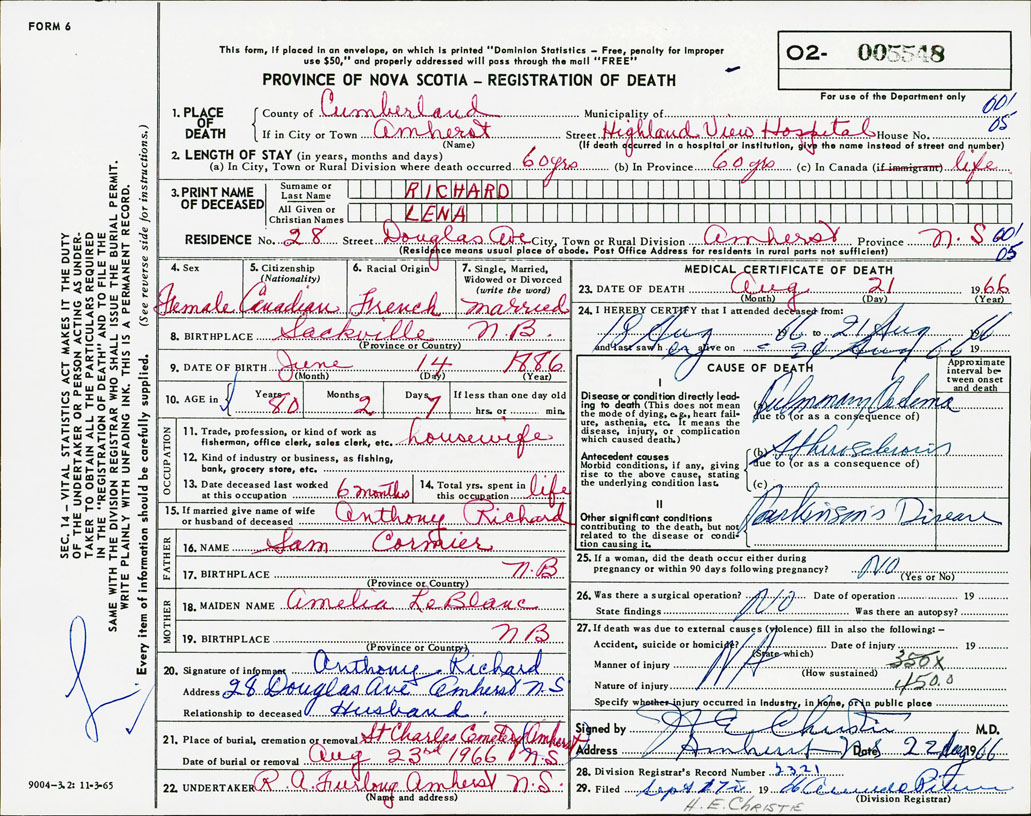 FORM 6
This form, if placed in an envelope, on which is printed "Dominion Statistics – Free, penalty for improper
use $50," and properly addressed will pass through the mail "FREE"
PROVINCE OF NOVA SCOTIA – REGISTRATION OF DEATH
O2- 005548
For use of the Department only
1. PLACE OF DEATH
County of Cumberland Municipality of
001
05
If in City or Town Amherst Street Highland View Hospital House No.
(Name) (If death occurred in a hospital or institution, give the name instead of street and number)
2. LENGTH OF STAY (in years, months and days)
(a) In City, Town or Rural Division where death occurred 60 yrs (b) In Province 60 yrs (c) In Canada (if immigrant) life
3. PRINT NAME OF DECEASED
Surname or Last Name RICHARD
All Given or Christian Names LENA
RESIDENCE No. 28 Street Douglas Ave City, Town or Rural Division Amherst Province N.S
001
05
(Residence means usual place of abode. Post Office Address for residents in rural parts not sufficient)
4. Sex
Female
5. Citizenship
(Nationality)
Canadian
6. Racial Origin
French
7. Single, Married,
Widowed or Divorced
(write the word)
married
8. BIRTHPLACE Sackville N.B.
(Province or Country)
9. DATE OF BIRTH June 14 1886
(Month) (Day) (Year)
10. AGE in Years 80 Months 2 Days 7 If less than one day old
hrs. or min.
OCCUPATION
11. Trade, profession, or kind of work as
fisherman, office clerk, sales clerk, etc. housewife
12. Kind of industry or business, as fishing,
bank, grocery store, etc.
13. Date deceased last worked
at this occupation 6 months
14. Total yrs. spent in
this occupation life
15. If married give name of wife
or husband of deceased Anthony Richard
FATHER
16. NAME Sam Cormier
17. BIRTHPLACE N.B
(Province or Country)
MOTHER
18. MAIDEN NAME Amelia LeBlanc
19. BIRTHPLACE N B
(Province or Country)
20. Signature of informant Anthony Richard
Address 28 Douglas Ave Amherst N.S
Relationship to deceased Husband.
21. Place of burial, cremation or removal St Charles Cemetery Amherst
Date of burial or removal Aug 23rd 1966 N.S
22. UNDERTAKER R. A. Furlong Amherst N.S.
(Name and address)
MEDICAL CERTIFICATE OF DEATH
23. DATE OF DEATH Aug 21 1966
(Month) (Day) (Year)
24. I HEREBY CERTIFY that I attended deceased from:
18 Aug 66 to 21 Aug 1966
and last saw her alive on Aug 66 19
CAUSE OF DEATH
Approximate
interval be-
tween onset
and death
I
Disease or condition directly lead-
ing to death (This does not mean
the mode of dying, e.g., heart fail-
ure, asthenia, etc. It means the
disease, injury, or complication
which caused death.)
(a) Pulmonary Oedema
due to (or as a consequence of)
Antecedent causes
Morbid conditions, if any, giving
rise to the above cause, stating
the underlying condition last.
(b)
due to (or as a consequence of)
(c)
II
Other significant conditions
contributing to the death, but not
related to the disease or condi-
tion causing it.
Parkinson's Disease
25. If a woman, did the death occur either during
pregnancy or within 90 days following pregnancy? NO
(Yes or No)
26. Was there a surgical operation? NO Date of operation 19
State findings Was there an autopsy?
27. If death was due to external causes (violence) fill in also the following: –
Accident, suicide or homicide? NA Date of injury 19
(State which)
Manner of injury 350X
(How sustained)
Nature of injury 450.0
Specify whether injury occurred in Industry, in home, or in public place
Signed by H E Christie M.D.
Address Amherst N S Date 22 Aug 1966
28. Division Registrar's Record Number 3321
29. Filed Sept 19 66
(Division Registrar)
H. E. CHRISTIE
SEC. 14 – VITAL STATISTICS ACT MAKES IT THE DUTY
OF THE UNDERTAKER OR PERSON ACTING AS UNDER-
TAKER TO OBTAIN ALL THE PARTICULARS REQUIRED
IN THE "REGISTRATION OF DEATH" AND TO FILE THE
SAME WITH THE DIVISION REGISTRAR WHO SHALL ISSUE THE BURIAL PERMIT.
WRITE PLAINLY WITH UNFADING INK. THIS IS A PERMANENT RECORD.
Every item of information should be carefully supplied. (See reverse side for instructions.)
9004-3.2: 11-3-65